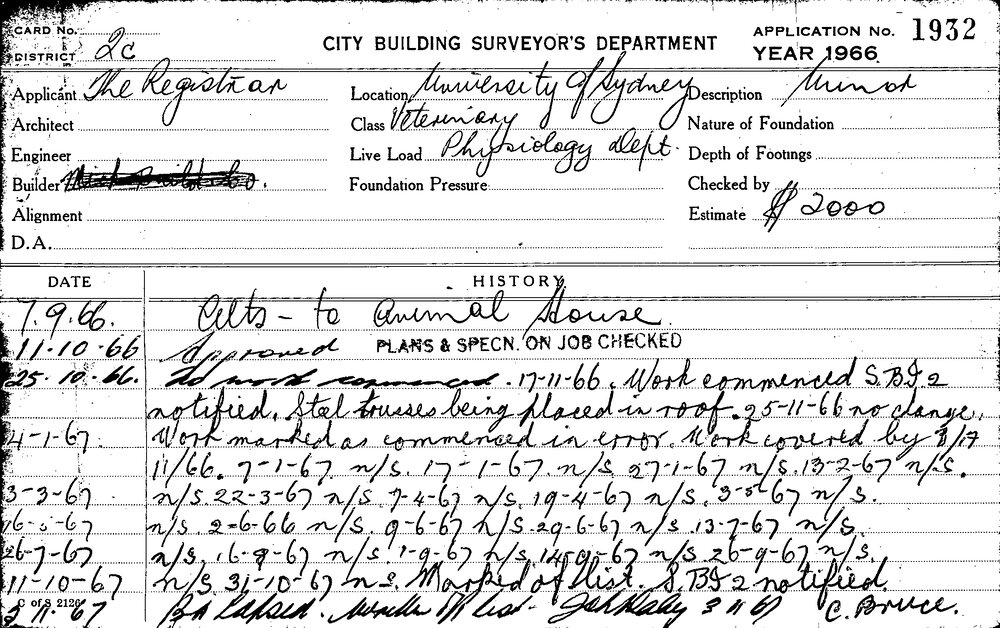 CARD No.
DISTRICT 2c
CITY BUILDING SURVEYOR'S DEPARTMENT
APPLICATION No. 1932
YEAR 1966
Applicant The Registrar
Location University of Sydney
Description Minor
Architect
Class Veterinary
Nature of Foundation
Engineer
Live Load Physiology Dept.
Depth of Footings
Builder
Foundation Pressure
Checked by
Alignment
Estimate $2000
D.A.
DATE HISTORY
7.9.66. Alts - to Animal House
11-10-66 Approved PLANS & SPECN. ON JOB CHECKED
25.10.66. No work commenced. 17-11-66. Work commenced S.B.I 2
notified. Steel trusses being placed in roof. 25-11-66 no change.
4-1-67. Work marked as commenced in error. Work covered by
11/66. 7-1-67. n/s. 17-1-67. n/s 27-1-67 n/s. 13-2-67 n/s.
3-3-67 n/s. 22-3-67 n/s. 7-4-67 n/s. 19-4-67 n/s. 3-5-67 n/s.
n/s. 2-6-66 n/s. 9-6-67 n/s. 29-6-67 n/s. 13-7-67 n/s.
26-7-67 n/s. 16-8-67 n/s 1-9-67 n/s. 14-9-67 n/s. 26-9-67 n/s.
11-10-67 n/s 31-10-67 n.s. Marked of list. S.B.I 2 notified.
C of S. 2126
BA Lapsed. 3 11 67 C. Bruce.